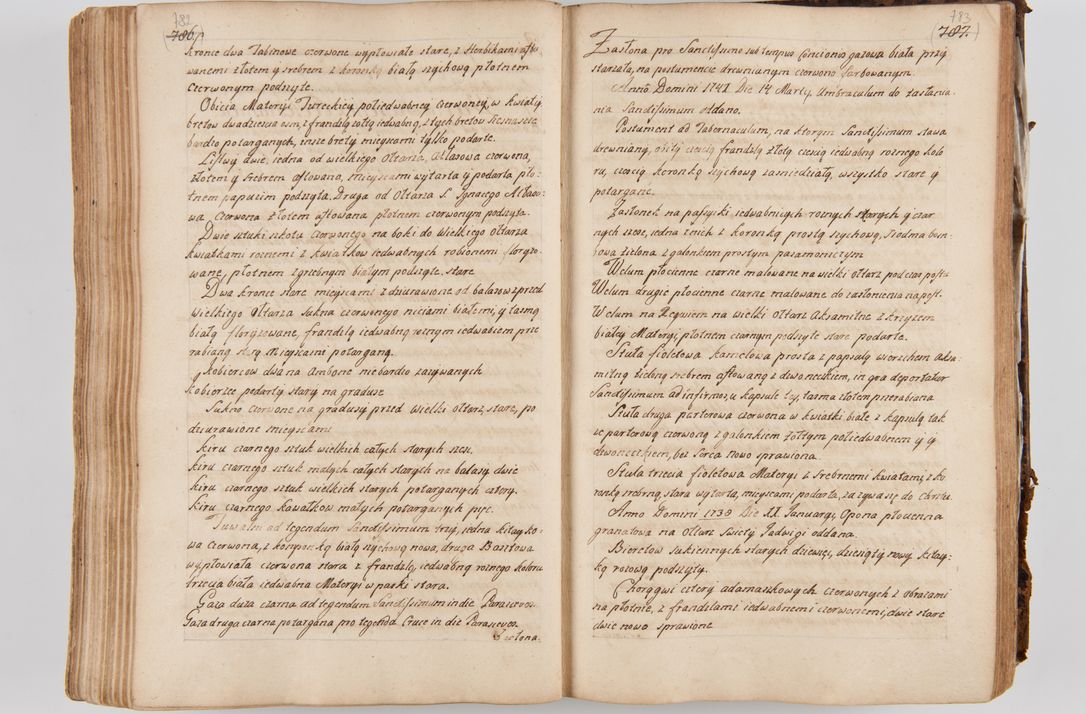 782
786.
Kronce dwa Tabinowe czerwone wypłowiałe stare, z Herbikami afto
wanemi złotem y srebrem z koronką białą szychową płotnem
czerwonym podszyte.
Obicia Materyi Tureckiey połiedwabney czerwoney, w kwiaty
bretow dwadziescia osm, z frandzlą żołtą iedwabną, z tych bretow
bardzo potarganych, insze brety mieyscami tylko podarte.
Listwy dwie, iedna od wielkiego Ołtarza, Atłasowa czerwona,
złotem y srebrem aftowana, mieyscami wytarta y podarta, pło-
tnem papuzim podszyta. Druga od Ołtarza S. Ignacego Atłaso-
wa czerwona złotem aftowana płotnem czerwonym podszyta.
Dwie sztuki czerwonego na boki do wielkiego Ołtarza
kwiatkami roznemi z kwiatkow iedwabnych robionemi floryzo-
wane, płotnem zgrzebnym białym podszyte. stare
Dwa kronce stare mieyscami zdziurawione od balasow zprzed
wielkiego Ołtarza sukna czerwonego niciami białemi, y tasmą
białą floryzowane, frandzlą iedwabną roznym iedwabiem prze
rabianą mieyscami potarganą.
Kobiercow dwa na Ambone niebardzo zazywanych
Kobierzec podarty stary na graduse
Sukno czerwone na gradusy przed wielki ołtarz, stare, po
dziurawione mieyscami
Kiru czarnego sztuk wielkich całych starych szesc.
Kiru czarnego sztuk małych całych starych na balasy dwie
Kiru czarnego sztuk wielkich starych potarganych cztery.
Kiru czarnego kawałkow małych potarganych pięc.
Tuwalni ad tegendum Sanctissimum trzy, iedna kitayko
wa czerwona, z koronką białą szychową nowa, druga Bastowa
wypłowiała czerwona stara z frandzlą iedwabną roznego koloru
trzecia biała iedwabna Materyi w paski stara.
Gaza duza czarna ad tegendum Sanctissimum in die Parasceves.
Gaza druga czarna potargana pro tegenda Cruce in die Parasceves.
Zasłona
783
787.
Zasłona pro Sanctissimo sub tempus Concionis gazowa biała przy
starzała, na postumencie drewnianym czerwono farbowanym.
Anno Domini 1741 Die 14 Marty, Umbraculum do zasłania-
nia Sanctissimum oddano.
Postument od Tabernaculum, na ktorym Sanctissimum stawa
drewniany, obity częscią frandzlą złotą częscią iedwabną roznego kolo
ru, częscią koronką szychową zasniedziałą, wszystko stare y
potargane.
Zasłonek na passyiki iedwabnych roznych starych y czar
nych szesc, iedna z nich z koronką prostą szychową, Siodma
zielona z galonkiem prostym pasamoniczym
Welum płocienne czarne malowane na wielki ołtarz pod czas postu
Welum drugie płocienne czarne malowane do zasłonienia na post.
Welum na Requiem na wielki Ołtarz Aksamitne z krzyzem
białey Materyi, płotnem czarnym podszyte stare podarte.
Stuła fioletowa kamelowa prosta z kapsułą wierzchem Aksa-
mitną zieloną srebrem aftowaną z dzwonczkiem, in qua deportatur
Sanctissimum ad infirmos, u kapsule tey, tasma złotem przerabiana
Stuła druga parterowa czerwona w kwiatki białe z kapsułą tak
ze parterową czerwoną z galonkiem żołtym połiedwabnem y z
dzwonczkiem, bez serca nowo sprawiona.
Stuła trzecia fioletowa Materyi z srebrnemi kwiatami, z ko
ronką srebrną, stara wytarta, mieyscami podarta, zazywa się do Chrztu.
Anno Domini 1738 Die XX Januarij, Opona płocienna
granatowa na Ołtarz Swietey Jadwigi oddana.
Bioretow sukiennych starych dziewięc, dziesiąty nowy kitay-
ką rozową podszyty.
Chorągwi cztery adamaszkowych czerwonych z obrazami
na płotnie, z frandzlami iedwabnemi czerwonemi, dwie stare
dwie nowo sprawione